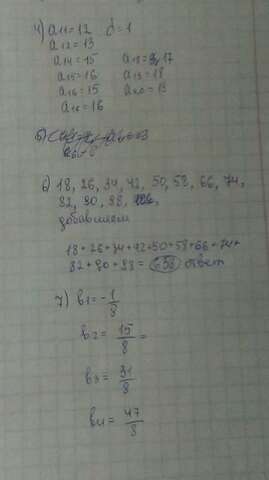 4) a11=12 d=1
a12=13
a14=15 a18=17
a15=16 a19=18
a16=15 a20=13
a18=16
5)
6) 18, 26, 34, 42, 50, 58, 66, 74,
82, 90, 98,
добавляем
18+26+34+42+50+58+66+74+
82+90+98= 638 ответ
7) b1=-1/8
b2= 15/8 =
b3= 31/8
b4= 47/8